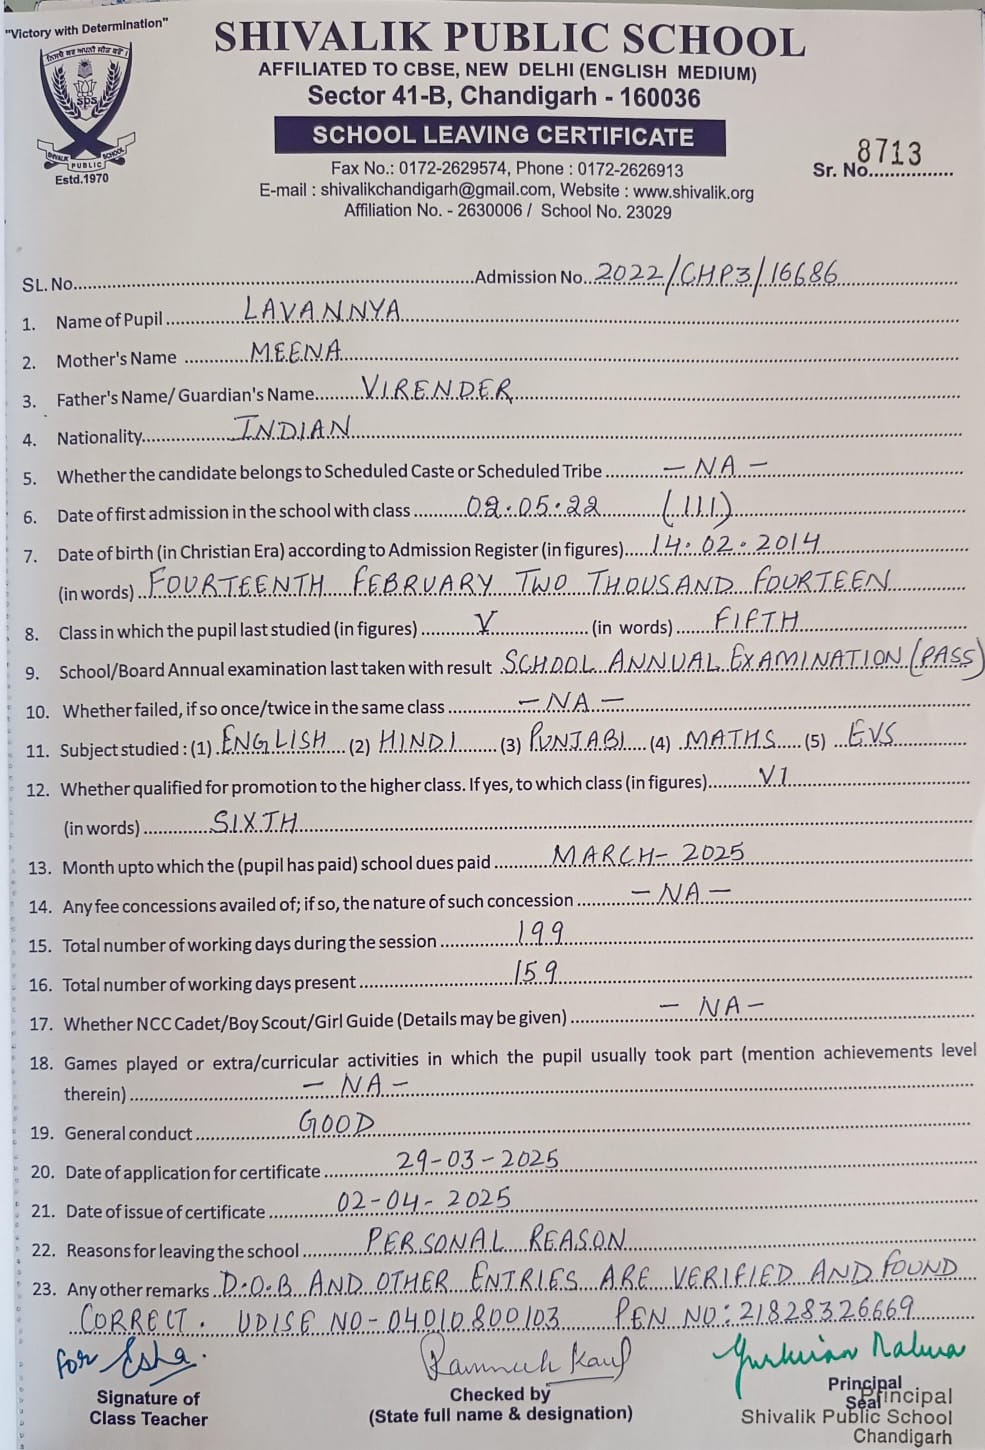 "Victory with Determination"
SHIVALIK PUBLIC SCHOOL
AFFILIATED TO CBSE, NEW DELHI (ENGLISH MEDIUM)
Sector 41-B, Chandigarh - 160036
SCHOOL LEAVING CERTIFICATE
sps
SHIVALIK PUBLIC SCHOOL
Estd.1970
Fax No.: 0172-2629574, Phone : 0172-2626913
E-mail : shivalikchandigarh@gmail.com, Website : www.shivalik.org
Affiliation No. - 2630006 / School No. 23029
Sr. No. 8713
SL. No. Admission No. 2022/CHP3/16686
1. Name of Pupil LAVANNYA
2. Mother's Name MEENA
3. Father's Name/ Guardian's Name VIRENDER
4. Nationality INDIAN
5. Whether the candidate belongs to Scheduled Caste or Scheduled Tribe – NA –
6. Date of first admission in the school with class 02.05.22 (III)
7. Date of birth (in Christian Era) according to Admission Register (in figures) 14.02.2014
(in words) FOURTEENTH FEBRUARY TWO THOUSAND FOURTEEN
8. Class in which the pupil last studied (in figures) V (in words) FIFTH
9. School/Board Annual examination last taken with result SCHOOL ANNUAL EXAMINATION (PASS)
10. Whether failed, if so once/twice in the same class – NA –
11. Subject studied : (1) ENGLISH (2) HINDI (3) PUNJABI (4) MATHS (5) EVS
12. Whether qualified for promotion to the higher class. If yes, to which class (in figures) VI
(in words) SIXTH
13. Month upto which the (pupil has paid) school dues paid MARCH- 2025
14. Any fee concessions availed of; if so, the nature of such concession – NA –
15. Total number of working days during the session 199
16. Total number of working days present 159
17. Whether NCC Cadet/Boy Scout/Girl Guide (Details may be given) – NA –
18. Games played or extra/curricular activities in which the pupil usually took part (mention achievements level
therein) – NA –
19. General conduct GOOD
20. Date of application for certificate 29-03-2025
21. Date of issue of certificate 02-04-2025
22. Reasons for leaving the school PERSONAL REASON
23. Any other remarks D.O.B AND OTHER ENTRIES ARE VERIFIED AND FOUND
CORRECT. UDISE NO-04010800103 PEN NO:21828326669
for Esha.
Signature of
Class Teacher
Checked by
(State full name & designation)
Principal
Seal
Principal
Shivalik Public School
Chandigarh